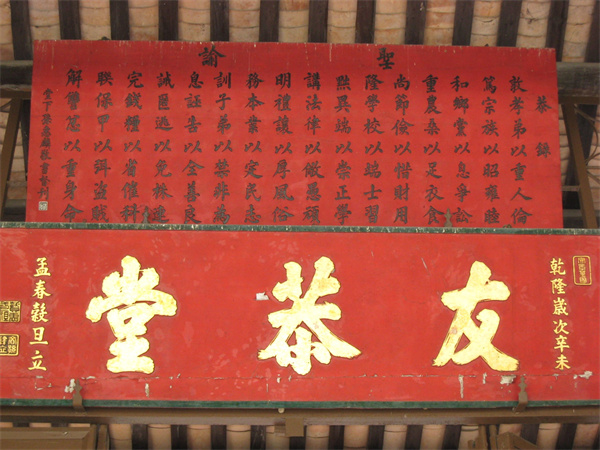 聖諭
恭錄
敦孝弟以重人倫
篤宗族以昭雍睦
和鄉黨以息爭訟
重農桑以足衣食
尚節儉以惜財用
隆學校以端士習
黜異端以崇正學
講法律以儆愚頑
明禮讓以厚風俗
務本業以定民志
訓子弟以禁非為
息誣告以全善良
誡匿逃以免株連
完錢糧以省催科
聯保甲以弭盜賊
解讐忿以重身命
乾隆歲次辛未
友恭堂
孟春穀旦立